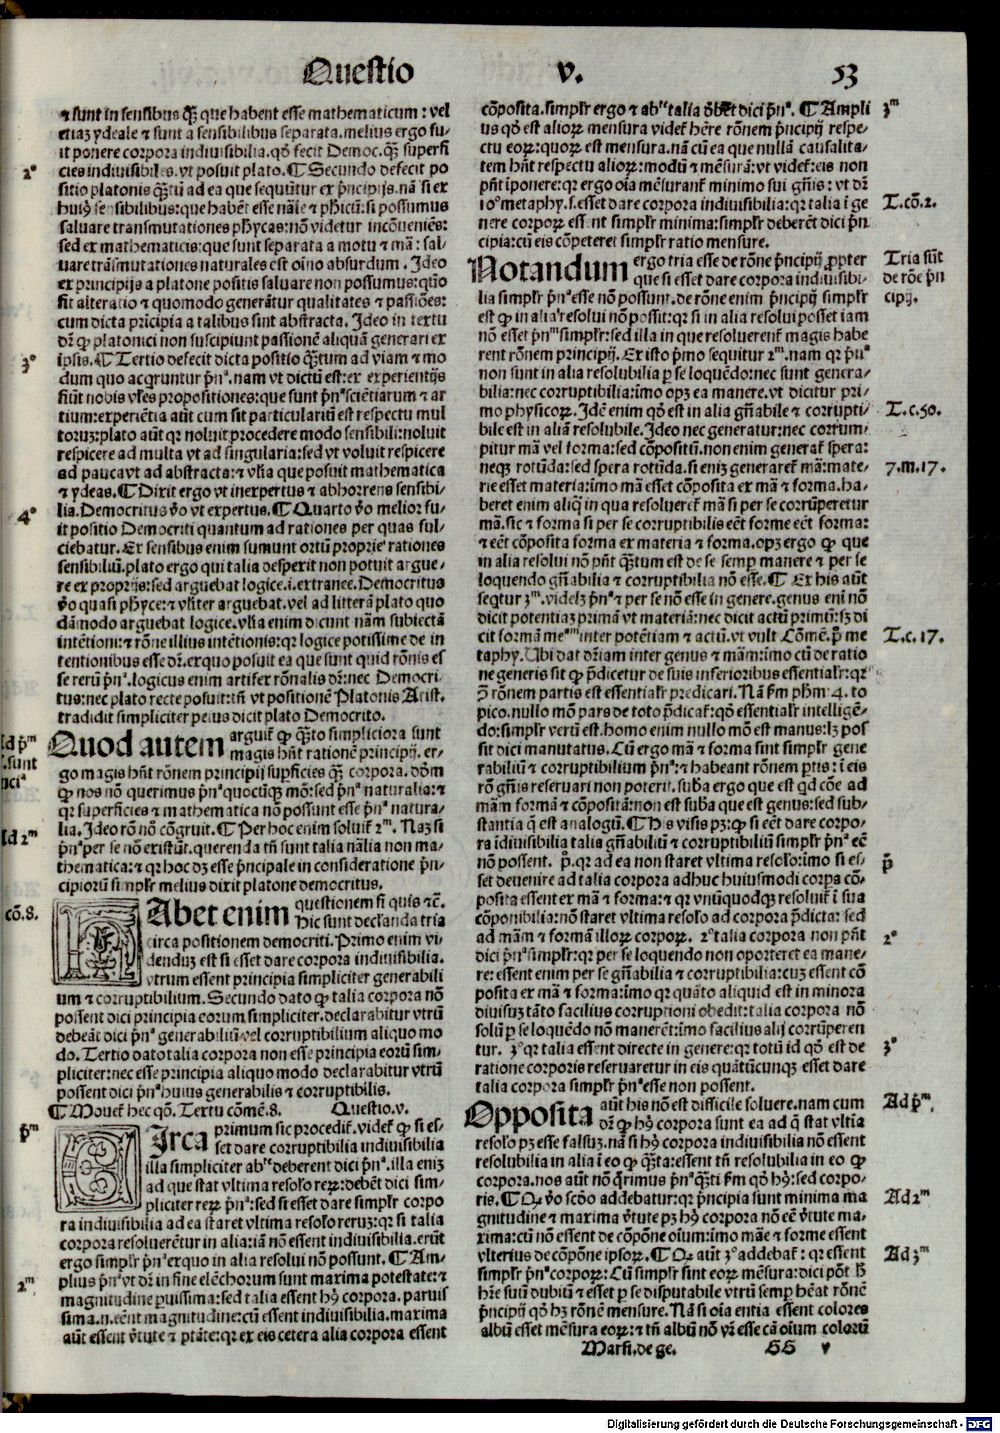 Questio v. 53
⁊ sunt in sensibus q̃ȝ que habent esse mathematicum: vel
etiaȝ ydeale ⁊ sunt a sensibilibus separata. melius ergo fu-
it ponere corpora indiuisibilia. qđ fecit Democ. q̃ȝ superfi
cies indiuisibiles. vt posuit plato. ¶ Secundo defecit po
2º
sitio platonis q̃ȝtũ ad ea que sequũtur ex p̃ncipijs. nã si ex
huiꝰ sensibilibus: que habẽt esse nãle ⁊ phicũ: si possumus
saluare transmutationes phycas: nõ videtur incõueniẽs:
sed ex mathematicis: que sunt separata a motu ⁊ mã: sal-
uare trãsmutationes naturales est oĩno absurdum. Ideo
ex principijs a platone positis saluare non possumus: quõo
fit alteratio ⁊ quomodo generãtur qualitates ⁊ passiões:
cum dicta prĩcipia a talibus sint abstracta. Ideo in textu
dr̃ ꝙ platonici non suscipiunt passionẽ aliquã generari ex
ipsis. ¶ Tertio defecit dicta positio q̃ȝtum ad viam ⁊ mo
3º
dum quo acqruntur p̃nª. nam vt dictũ est: ex experientijs
fiũt nobis vl̃es propositiones: que sunt p̃nª sciẽtiarum ⁊ ar
tium: experiẽtia aũt cum sit particulariũ est respectu mul
toruȝ: plato aũt qr noluit procedere modo sensibili: noluit
respicere ad multa vt ad singularia: sed vt voluit respicere
ad pauca vt ad abstracta: ⁊ vl̃ia que posuit mathematica
⁊ ydeas. ¶ Dixit ergo vt inexpertus ⁊ abhorrens sensibi-
lia. Democritus ṽo vt expertus. ¶ Quarto ṽo melior fu-
4º
it positio Democriti quantum ad rationes per quas ful-
ciebatur. Ex sensibus enim sumunt ortũ proprie rationes
sensibiliũ. plato ergo qui talia despexit non potuit argue-
re ex proprijs: sed arguebat logice. i. extranee. Democritus
ṽo quasi phyce: ⁊ vl̃iter arguebat. vel ad litterã plato quo
dãmodo arguebat logice. vl̃ia enim dicunt nãm subiectã
intẽtioni: ⁊ rõne illius intẽtionis: qr logice potissime de in
tentionibus esse dr̃. ex quo posuit ea que sunt quid rõnis es
se rerũ p̃nª. logicus enim artifex rõnalis dr̃: nec Democri-
tus: nec plato recte posuit: tñ vt positionẽ Platonis Arist.
tradidit simpliciter peius dicit plato Democrito.
Quod autem arguit̃ ꝙ q̃ȝto simpliciora sunt
magis hñt rationẽ principij. er-
go magis hñt rõnem principij sup̃ficies q̃ȝ corpora. đõm
ꝙ nos nõ querimus p̃nª quocũqȝ mõ: sed p̃nª naturalia: ⁊
qr superficies ⁊ mathematica nõ possunt esse p̃nª natura-
lia. Ideo rõ nõ cõgruit. ¶ Per hoc enim soluit̃ 2ᵐ. Naȝ si
Ad 2ᵐ
p̃nª per se nõ existũt. querenda tñ sunt talia nãlia non ma-
thematica: ⁊ qr hoc dȝ esse p̃ncipale in consideratione p̃n-
cipiorũ simpl̃r melius dixit platone democritus.
Habet enim questionem si quis ⁊c̃.
cõ. 8.
Hic sunt declarãda tria
circa positionem democriti. Primo enim vi-
denduȝ est si esset dare corpora indiuisibilia.
vtrum essent principia simpliciter generabili
um ⁊ corruptibilium. Secundo dato ꝙ talia corpora nõ
possent dici principia eorum simpliciter. declarabitur vtrũ
debeãt dici p̃nª generabiliũ vel corruptibilium aliquo mo
do. Tertio dato talia corpora non esse principia eorũ sim-
pliciter: nec esse principia aliquo modo declarabitur vtrũ
possent dici p̃nª huius generabilis ⁊ corruptibilis.
¶ Mouet̃ hec qõ. Textu cõmẽ. 8. Questio. v.
Circa primum sic procedit̃. videt̃ ꝙ si es-
p̃ᵐ
set dare corruptibilia indiuisibilia
illa simpliciter abᵗᵉ deberent dici p̃nª. illa eniȝ
ad que stat vltima resolõ reꝝ: debẽt dici sim-
pliciter reꝝ p̃nª: sed si esset dare simpl̃r corpo
ra indiuisibilia ad ea staret vltima resolõ reruȝ: qr si talia
corpora resoluerẽtur in alia: iã nõ essent indiuisibilia. erũt
ergo simpl̃r p̃nª ex quo in alia resolui nõ possunt. ¶ Am-
2ᵐ
plius p̃nª vt dr̃ in fine elẽchorum sunt maxima potestate: ⁊
magnitudine p̃uissima: sed talia essent hꝰ corpora. paruis
sima. n. eẽnt magnitudine: cũ essent indiuisibilia. maxima
aũt essent ṽtute ⁊ ptãte: qr ex eis cetera alia corpora essent
cõposita. simpl̃r ergo ⁊ abᵗᵉ talia đbẽt dici p̃nª. ¶ Ampli
3ᵐ
us qđ est alioꝝ mensura videt̃ hẽre rõnem p̃ncipij respe-
ctu eoꝝ: quoꝝ est mensura. nã cũ ea que nullã causalita-
tem hñt respectu alioꝝ: modũ ⁊ mẽsurã: vt videt̃: eis non
pñt ĩponere: qr ergo oĩa mẽsurant̃ minimo sui gñis: vt dr̃
10º metaphy. s. esset dare corpora indiuisibilia: qr talia ĩ ge
T. cõ. 2.
nere corpoꝝ essent simpl̃r minima: simpl̃r deberẽt dici p̃n
cipia: cũ eis cõpeteret simpl̃r ratio mensure.
Notandum ergo tria esse de rõne p̃ncipij propter
Tria sũt
de rõe p̃n
cipij.
que si esset dare corpora indiuisibi-
lia simpl̃r p̃nª esse nõ possunt. de rõne enim p̃ncipij simpl̃r
est ꝙ in alia resolui nõ possit: qr si in alia resolui posset iam
nõ esset p̃nᵐ simpl̃r: sed illa in que resoluerent̃ magis habe
rent rõnem principij. Ex isto p̃mo sequitur 2ᵐ. nam qr p̃nª
non sunt in alia resolubilia p se loquẽdo: nec sunt genera-
bilia: nec corruptibilia: ĩmo opȝ ea manere. vt dicitur pri-
mo physicoꝝ. Idẽ enim qđ est in alia gñabile ⁊ corrupti-
T. c. 50.
bile est in aliã resolubile. Ideo nec generatur: nec corrum-
pitur mã vel forma: sed cõpositũ. non enim generat̃ spera:
neqȝ rotũda: sed spera rotũda. si eniȝ generaret̃ mã: mate-
7. m. 17.
rie esset materia: ĩmo mã esset cõposita ex mã ⁊ forma. ha-
beret enim aliq̃ in qua resolueret̃ mã si per se corrũperetur
mã. sic ⁊ forma si per se corruptibilis eẽt forme eẽt forma:
⁊ eẽt cõposita forma ex materia ⁊ forma. opȝ ergo ꝙ que
in alia resolui nõ pñt q̃ȝtum est de se semp manere ⁊ per se
loquendo gñabilia ⁊ corruptibilia nõ esse. ¶ Ex his aũt
seqtur 3ᵐ. videlȝ p̃nª ⁊ per se nõ esse in genere. genus eni nõ
dicit potentiaȝ primã vt materiã: nec dicit actũ primũ: sȝ di
cit formã meᵃᵐ inter potẽtiam ⁊ actũ. vt vult Cõmẽ. p̃. me
T. c. 17.
taphy. Ubi dat dr̃iam inter genus ⁊ mãm: ĩmo cũ de ratio
ne generis sit ꝙ p̃dicetur de suis inferioribus essential̃r: qr
rõnem partis est essential̃r predicari. Nã fm phm 4. to
pico. nullo mõ pars de toto p̃dicat̃: qđ essential̃r intelligẽ-
do: simpl̃r verũ est. homo enim nullo mõ est manus: lȝ pos
sit dici manutatus. Cũ ergo mã ⁊ forma sint simpl̃r gene
rabiliũ ⁊ corruptibilium p̃nª: ⁊ habeant rõnem p̃tis: ĩ eis
rõ gñis reseruari non poterit. suba ergo que est qđ cõe ad
mãm formã ⁊ cõpositã: non est suba que est genus: sed sub-
stantia q̃ est analogũ. ¶ His visis pȝ: ꝙ si eẽt dare corpo-
ra ĩdiuisibilia talia gñabiliũ ⁊ corruptibiliũ simpl̃r p̃nª eẽ
nõ possent. p̃. qr ad ea non staret vltima resolõ: ĩmo si es-
p̃
set deuenire ad talia corpora adhuc huiusmodi corpa cõ-
posita essent ex mã ⁊ forma: ⁊ qr vnũquodqȝ resoluit̃ ĩ sua
cõponibilia: nõ staret vltima resolõ ad corpora p̃dicta: sed
ad mãm ⁊ formã illoꝝ corpoꝝ. 2º talia corpora non pñt
2º
dici p̃nª simpl̃r: qr per se loquendo non oporteret ea mane-
re: essent enim per se gñabilia ⁊ corruptibilia: cuȝ essent cõ
posita ex mã ⁊ forma: ĩmo qr quãto aliquid est in minora
diuisuȝ tãto facilius corruptioni obedit: talia corpora nõ
solũ p se loquẽdo nõ manerẽt: ĩmo facilius alij corrũperen
tur. 3º qr talia essent directe in genere: qr totũ id qđ est de
3º
ratione corporis reseruaretur in eis quãtũcunqȝ esset dare
talia corpora simpl̃r p̃nª esse non possent.
Opposita aũt his nõ est difficile soluere. nam cum
Ad p̃ᵐ.
dr̃ ꝙ hꝰ corpora sunt ea ad q̃ stat vltĩa
resolõ pȝ esse falsuȝ. nã si hꝰ corpora indiuisibilia nõ essent
resolubilia in alia ĩ eo ꝙ q̃ȝta: essent tñ resolubilia in eo ꝙ
corpora. nos aũt nõ q̃rimus p̃nª q̃ȝti fm qđ hꝰ: sed corpo-
ris. ¶ Qꝛ ṽo scđo addebatur: qr p̃ncipia sunt minima ma
Ad 2ᵐ
gnitudine ⁊ maxima ṽtute pȝ hꝰ corpora nõ eẽ ṽtute ma-
xima: cũ nõ essent de cõpõne oĩum: ĩmo mãe ⁊ forme essent
vlterius de cõpõne ipsoꝝ. ¶ Qꝛ aũt 3º addebat̃: qr essent
Ad 3ᵐ
simpl̃r p̃nª corpoꝝ: Cũ simpl̃r sint eoꝝ mẽsura: dici põt
hr̃e suũ dubiũ ⁊ esset p se disputabile vtrũ semp hẽat rõnẽ
p̃ncipij qđ hȝ rõnẽ mensure. Nã si oĩa entia essent colores
albũ esset mẽsura eoꝝ: ⁊ tñ albũ nõ vr̃ esse cã oĩum colorũ
Marsi. de ge. GG v
Digitalisierung gefördert durch die Deutsche Forschungsgemeinschaft - DFG